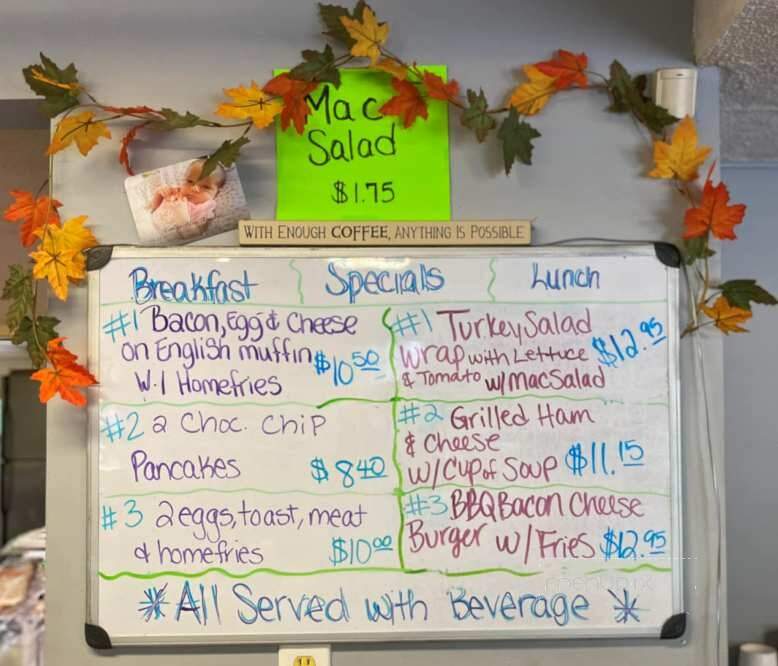 Mac
Salad
$1.75
WITH ENOUGH COFFEE, ANYTHING IS POSSIBLE
Breakfast Specials Lunch
#1 Bacon, Egg & Cheese
on English muffin
W/ Homefries $10.50
#2 2 Choc. Chip
Pancakes $8.40
#3 2 eggs, toast, meat
& homefries $10.00
#1 Turkey Salad
Wrap with Lettuce $12.95
& Tomato w/ Mac Salad
#2 Grilled Ham
& Cheese
w/ Cup of Soup $11.15
#3 BBQ Bacon Cheese
Burger w/ Fries $12.95
*All Served with Beverage*